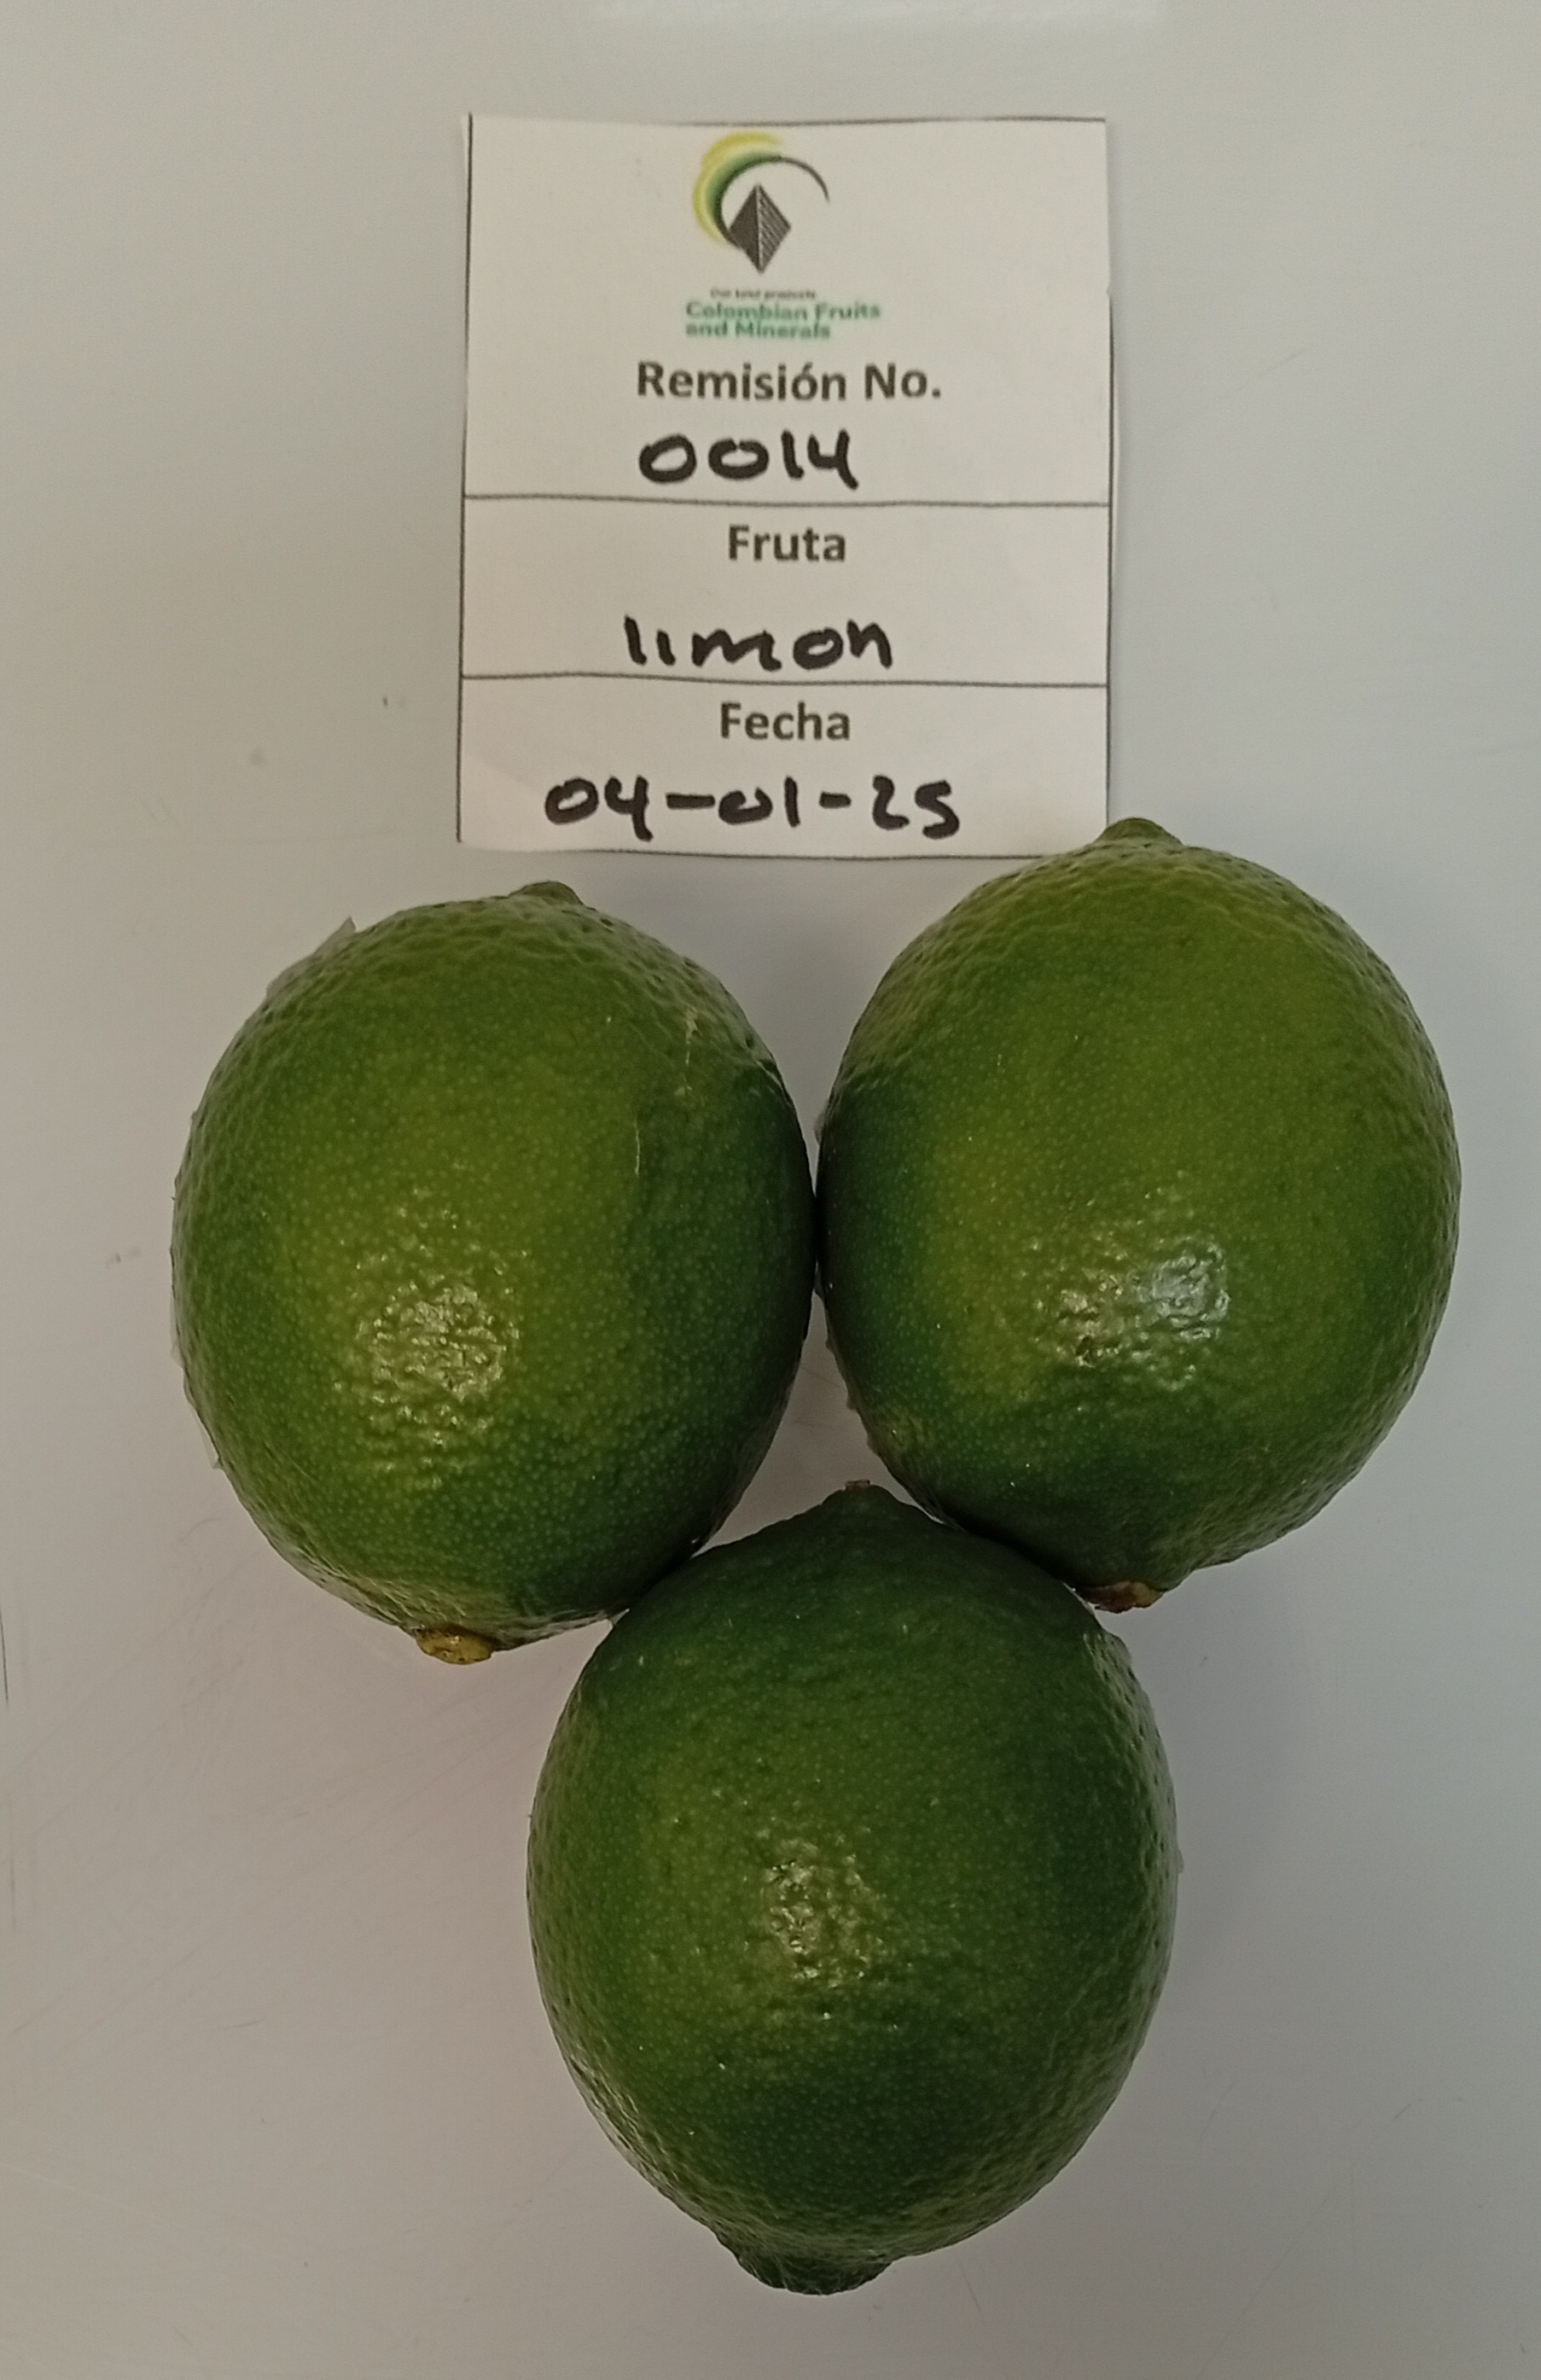 Our best products
Colombian Fruits
and Minerals
Remisión No.
0014
Fruta
limon
Fecha
04-01-25